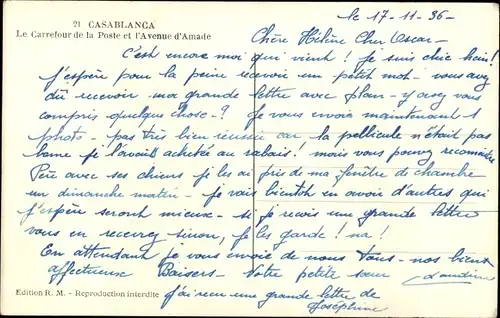 21 CASABLANCA
Le Carrefour de la Poste et l'Avenue d'Amade
le 17-11-36-
Chère Hélène Cher Oscar-
C'est encore moi qui vient ! Je suis chic hein !
J'espère pour la peine recevoir un petit mot - vous avez
dû recevoir ma grande lettre avec plan - y avez vous
compris quelque chose -? Je vous envoie maintenant 1
photo - pas très bien réussie car la pellicule n'était pas
bonne je l'avais achetée au rabais ! mais vous pouvez reconnaitre
Père avec ses chiens je les ai pris de ma fenêtre de chambre
un dimanche matin - je vais bientôt en avoir d'autres qui
j'espère seront mieux - si je reçois une grande lettre
vous en recevrez sinon, je les garde ! na !
En attendant je vous envoie de nous Tous - nos bien
affectueux Baisers - Votre petite sœur
j'ai reçu une grande lettre de
Joséphine
Edition R. M. - Reproduction interdite